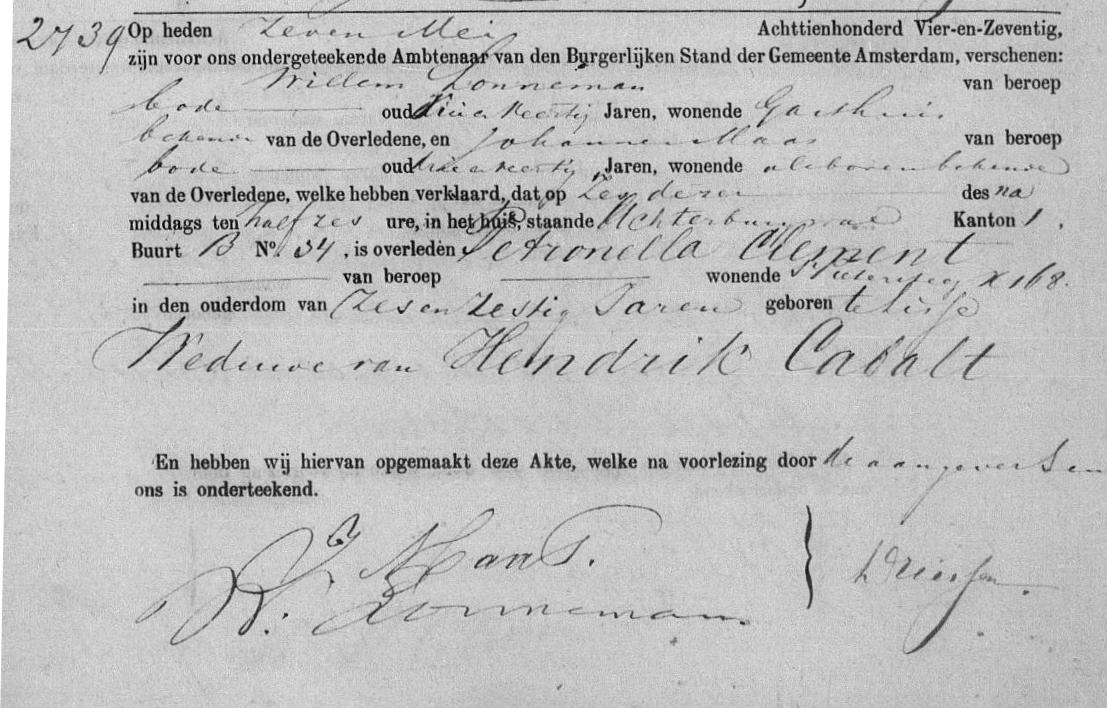 2739 Op heden Zeven Mei Achttienhonderd Vier-en-Zeventig,
zijn voor ons ondergeteekende Ambtenaar van den Burgerlijken Stand der Gemeente Amsterdam, verschenen:
Willem Zonneman van beroep
bode oud Jaren, wonende Gasthuis
bekende van de Overledene, en Johannes Maas van beroep
bode oud Jaren, wonende als boven bekende
van de Overledene, welke hebben verklaard, dat op Zes dezer des na
middags ten half zes ure, in het huis, staande Achterburgwal Kanton 1,
Buurt B No. 34, is overleden Petronella Clement
van beroep wonende X 168.
in den ouderdom van Zes en Zestig Jaren geboren te Lisse
Weduwe van Hendrik Cabalt
En hebben wij hiervan opgemaakt deze Akte, welke na voorlezing door de aangevers en
ons is onderteekend.
J. Maas.
W. Zonneman.